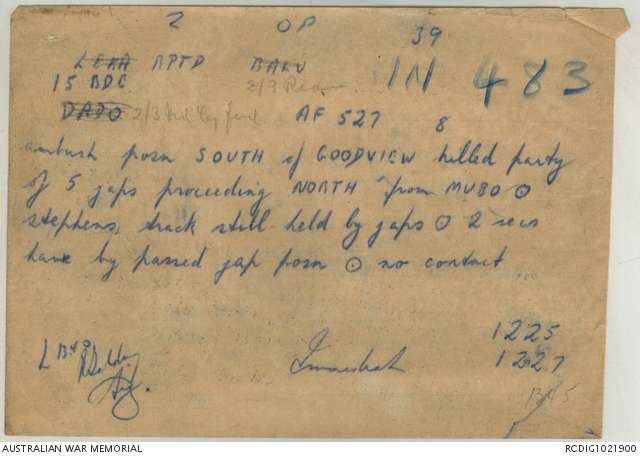 2 OP 39
LEKA RPTD BAKU IN 483
15 BDE 2/3
DADO 2/3 AF 527 8
ambush posn SOUTH of GOODVIEW killed party
of 5 japs proceeding NORTH from MUBO ⊙
stephens, track still held by japs ⊙ 2 secs
have by passed jap posn ⊙ no contact
1225
L Immediate 1227
AUSTRALIAN WAR MEMORIAL RCDIG1021900